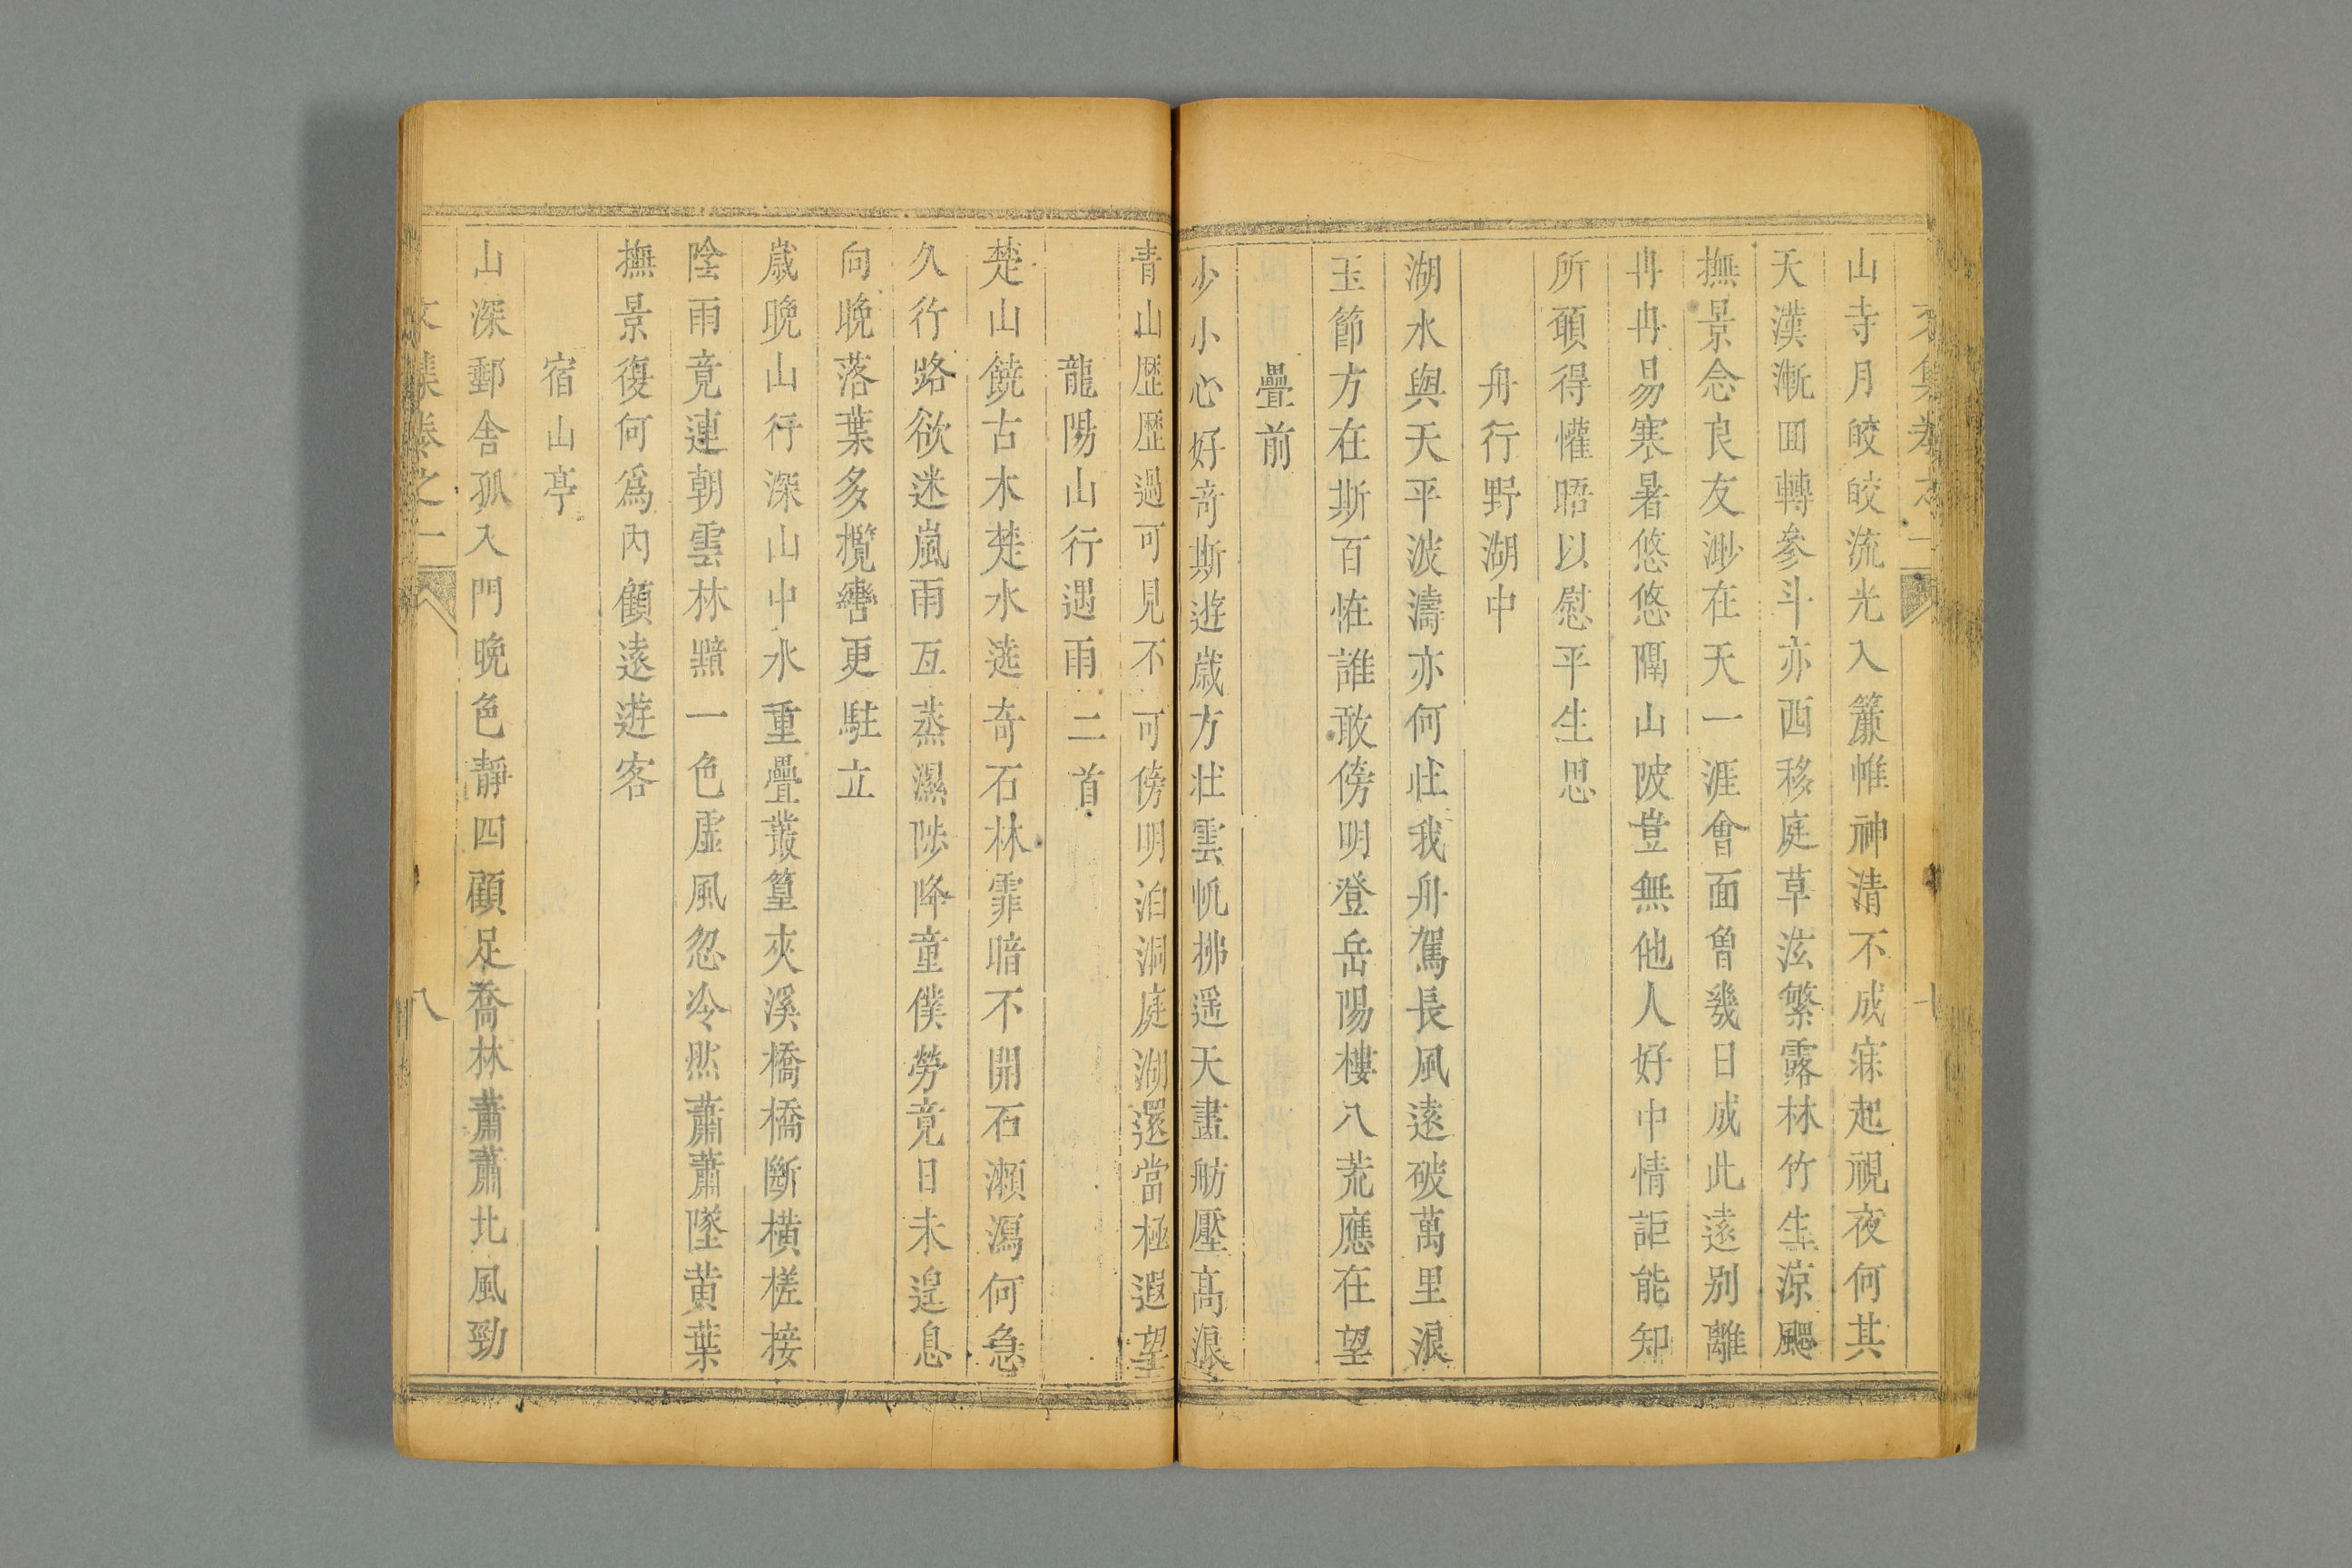 文集卷之一
山寺月皎皎流光入簾帷神清不成寐起視夜何其
天漢漸囬轉參斗亦西移庭草泫繁露林竹生涼颸
撫景念良友渺在天一涯會面曾幾日成此遠别離
冉冉易寒暑悠悠隔山陂豈無他人好中情詎能知
所願得懽晤以慰平生思
舟行野湖中
湖水與天平波濤亦何壮我舟駕長風遠破萬里浪
玉節方在斯百恠誰敢傍明登岳陽樓八荒應在望
疊前
少小心好奇斯遊歲方壮雲帆拂遥天畫舫壓髙浪
青山歷歷過可見不可傍明泊洞庭湖還當極遐望
龍陽山行遇雨二首
楚山饒古木楚水迤奇石林霏暗不開石瀬瀉何急
久行路欲迷嵐雨互蒸濕陟降童僕勞竟日未遑息
向晚落葉多攬轡更駐立
歳晩山行深山中水重疊叢篁夾溪橋橋斷横槎接
陰雨竟連朝雲林黯一色虛風忽冷然蕭蕭墜黄葉
撫景復何爲內顧遠遊客
宿山亭
山深郵舍孤入門晩色靜四顧足喬林蕭蕭北風勁
文集卷之一
八